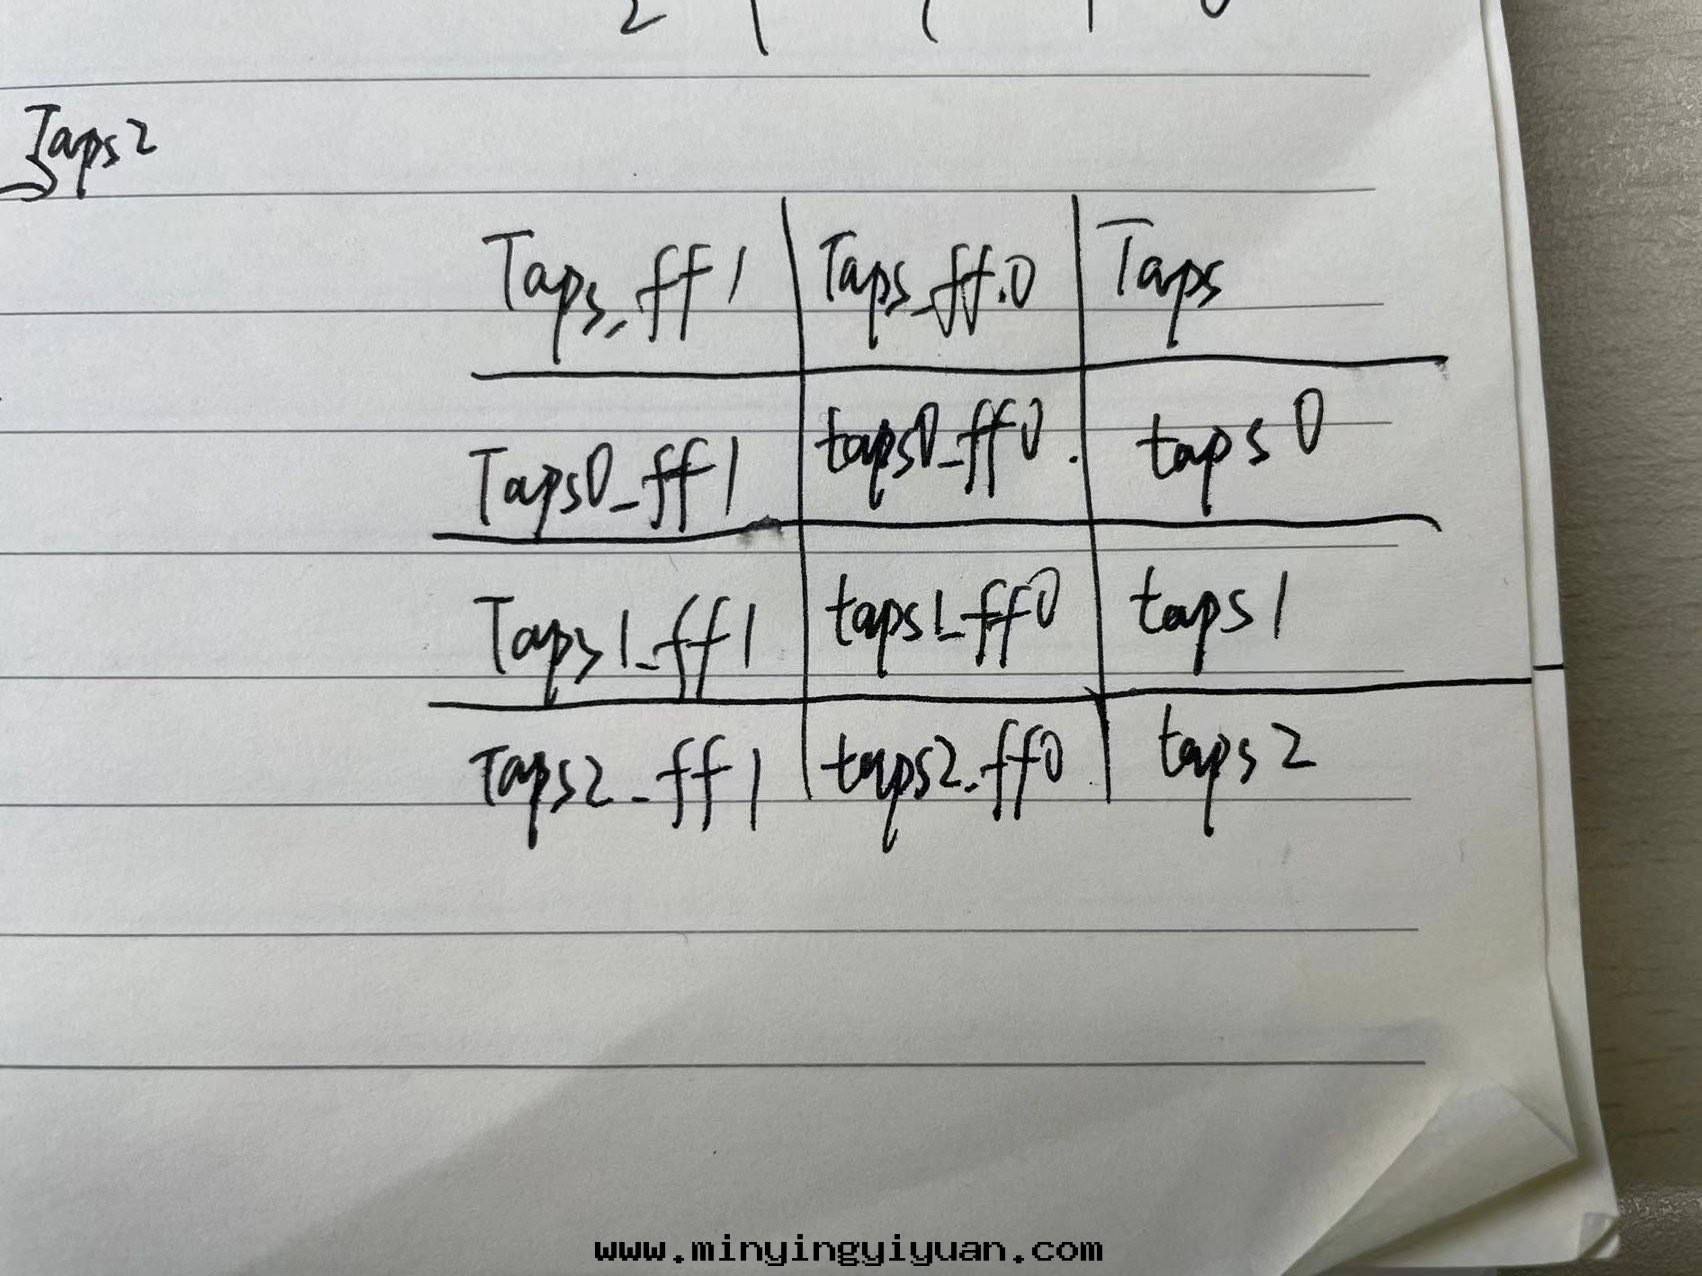 Taps2
Taps_ff1 Taps_ff0 Taps
Taps0_ff1 taps0_ff0 taps0
Taps1_ff1 taps1_ff0 taps1
Taps2_ff1 taps2_ff0 taps2
www.minyingyiyuan.com